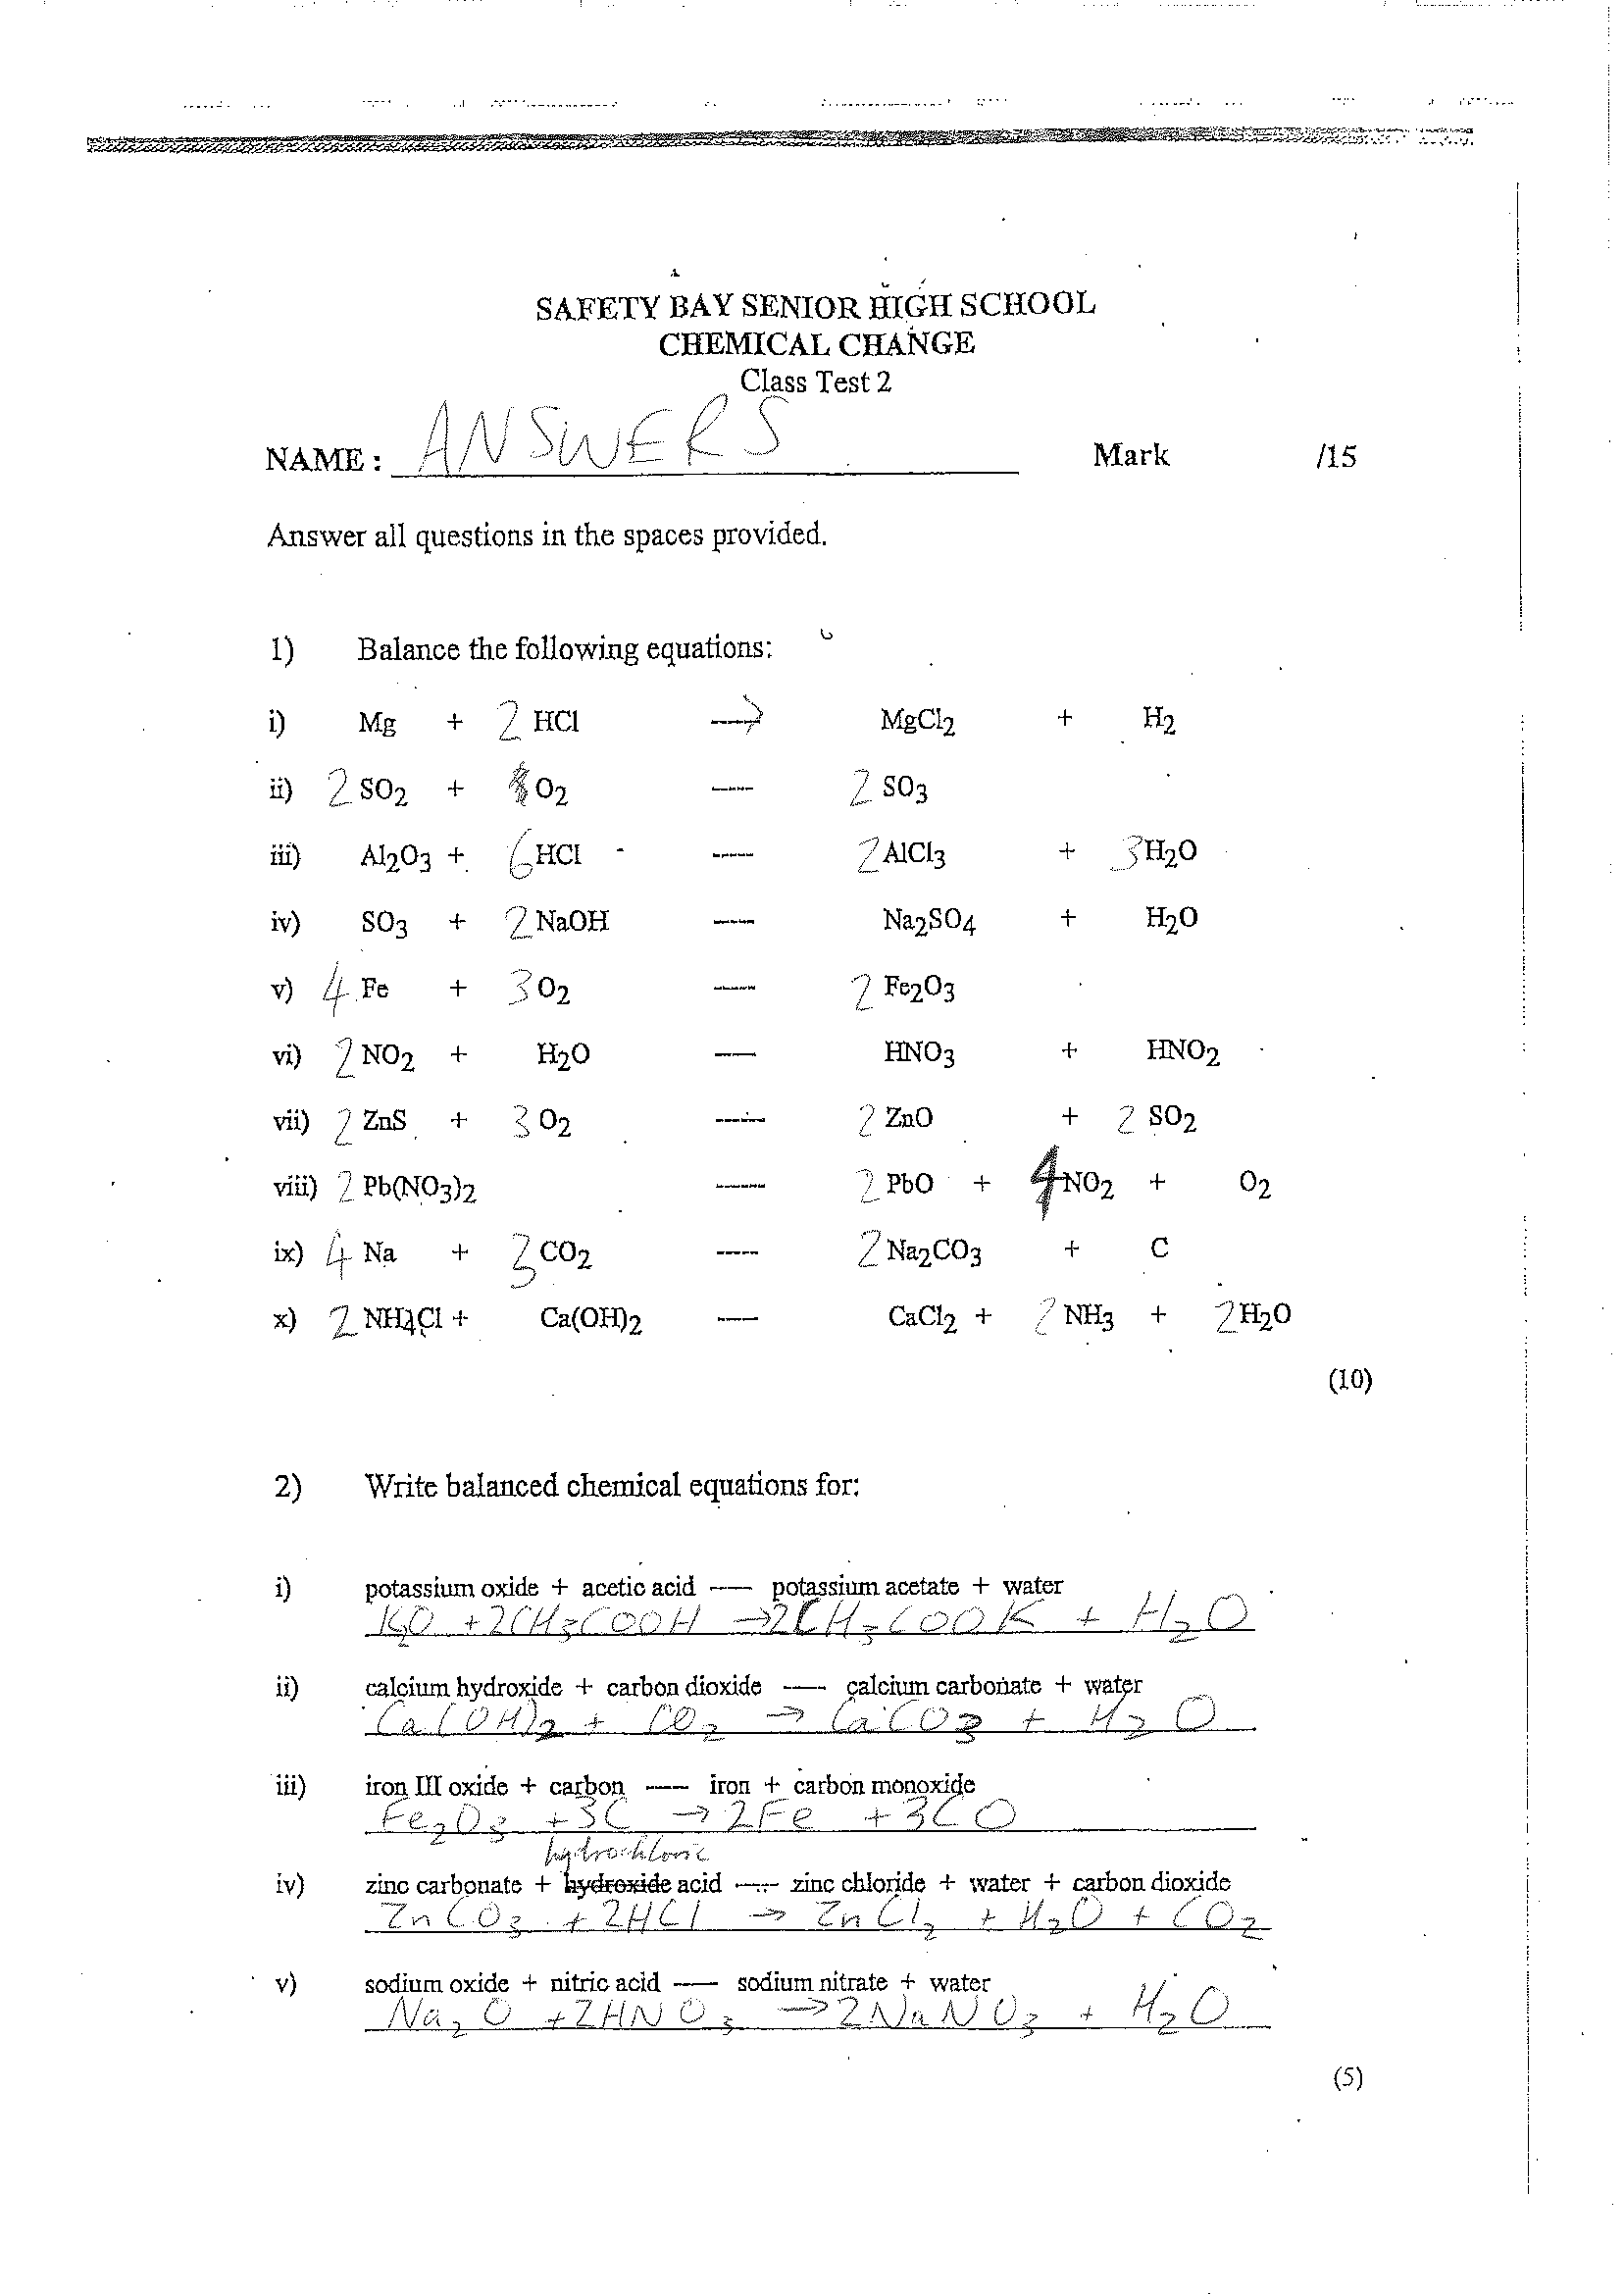 SAFETY BAY SENIOR HIGH SCHOOL
CHEMICAL CHANGE
Class Test 2
NAME : ANSWERS Mark /15
Answer all questions in the spaces provided.
1) Balance the following equations:
i) Mg + 2 HCl → MgCl2 + H2
ii) 2 SO2 + O2 — 2 SO3
iii) Al2O3 + 6 HCl — 2 AlCl3 + 3 H2O
iv) SO3 + 2 NaOH — Na2SO4 + H2O
v) 4 Fe + 3 O2 — 2 Fe2O3
vi) 2 NO2 + H2O — HNO3 + HNO2
vii) 2 ZnS + 3 O2 — 2 ZnO + 2 SO2
viii) 2 Pb(NO3)2 — 2 PbO + 4 NO2 + O2
ix) 4 Na + 3 CO2 — 2 Na2CO3 + C
x) 2 NH4Cl + Ca(OH)2 — CaCl2 + 2 NH3 + 2 H2O
(10)
2) Write balanced chemical equations for:
i) potassium oxide + acetic acid — potassium acetate + water
K2O + 2CH3COOH → 2CH3COOK + H2O
ii) calcium hydroxide + carbon dioxide — calcium carbonate + water
Ca(OH)2 + CO2 → CaCO3 + H2O
iii) iron III oxide + carbon — iron + carbon monoxide
Fe2O3 + 3C → 2Fe + 3CO
hydrochloric
iv) zinc carbonate + hydroxide acid — zinc chloride + water + carbon dioxide
ZnCO3 + 2HCl → ZnCl2 + H2O + CO2
v) sodium oxide + nitric acid — sodium nitrate + water
Na2O + 2HNO3 → 2NaNO3 + H2O
(5)